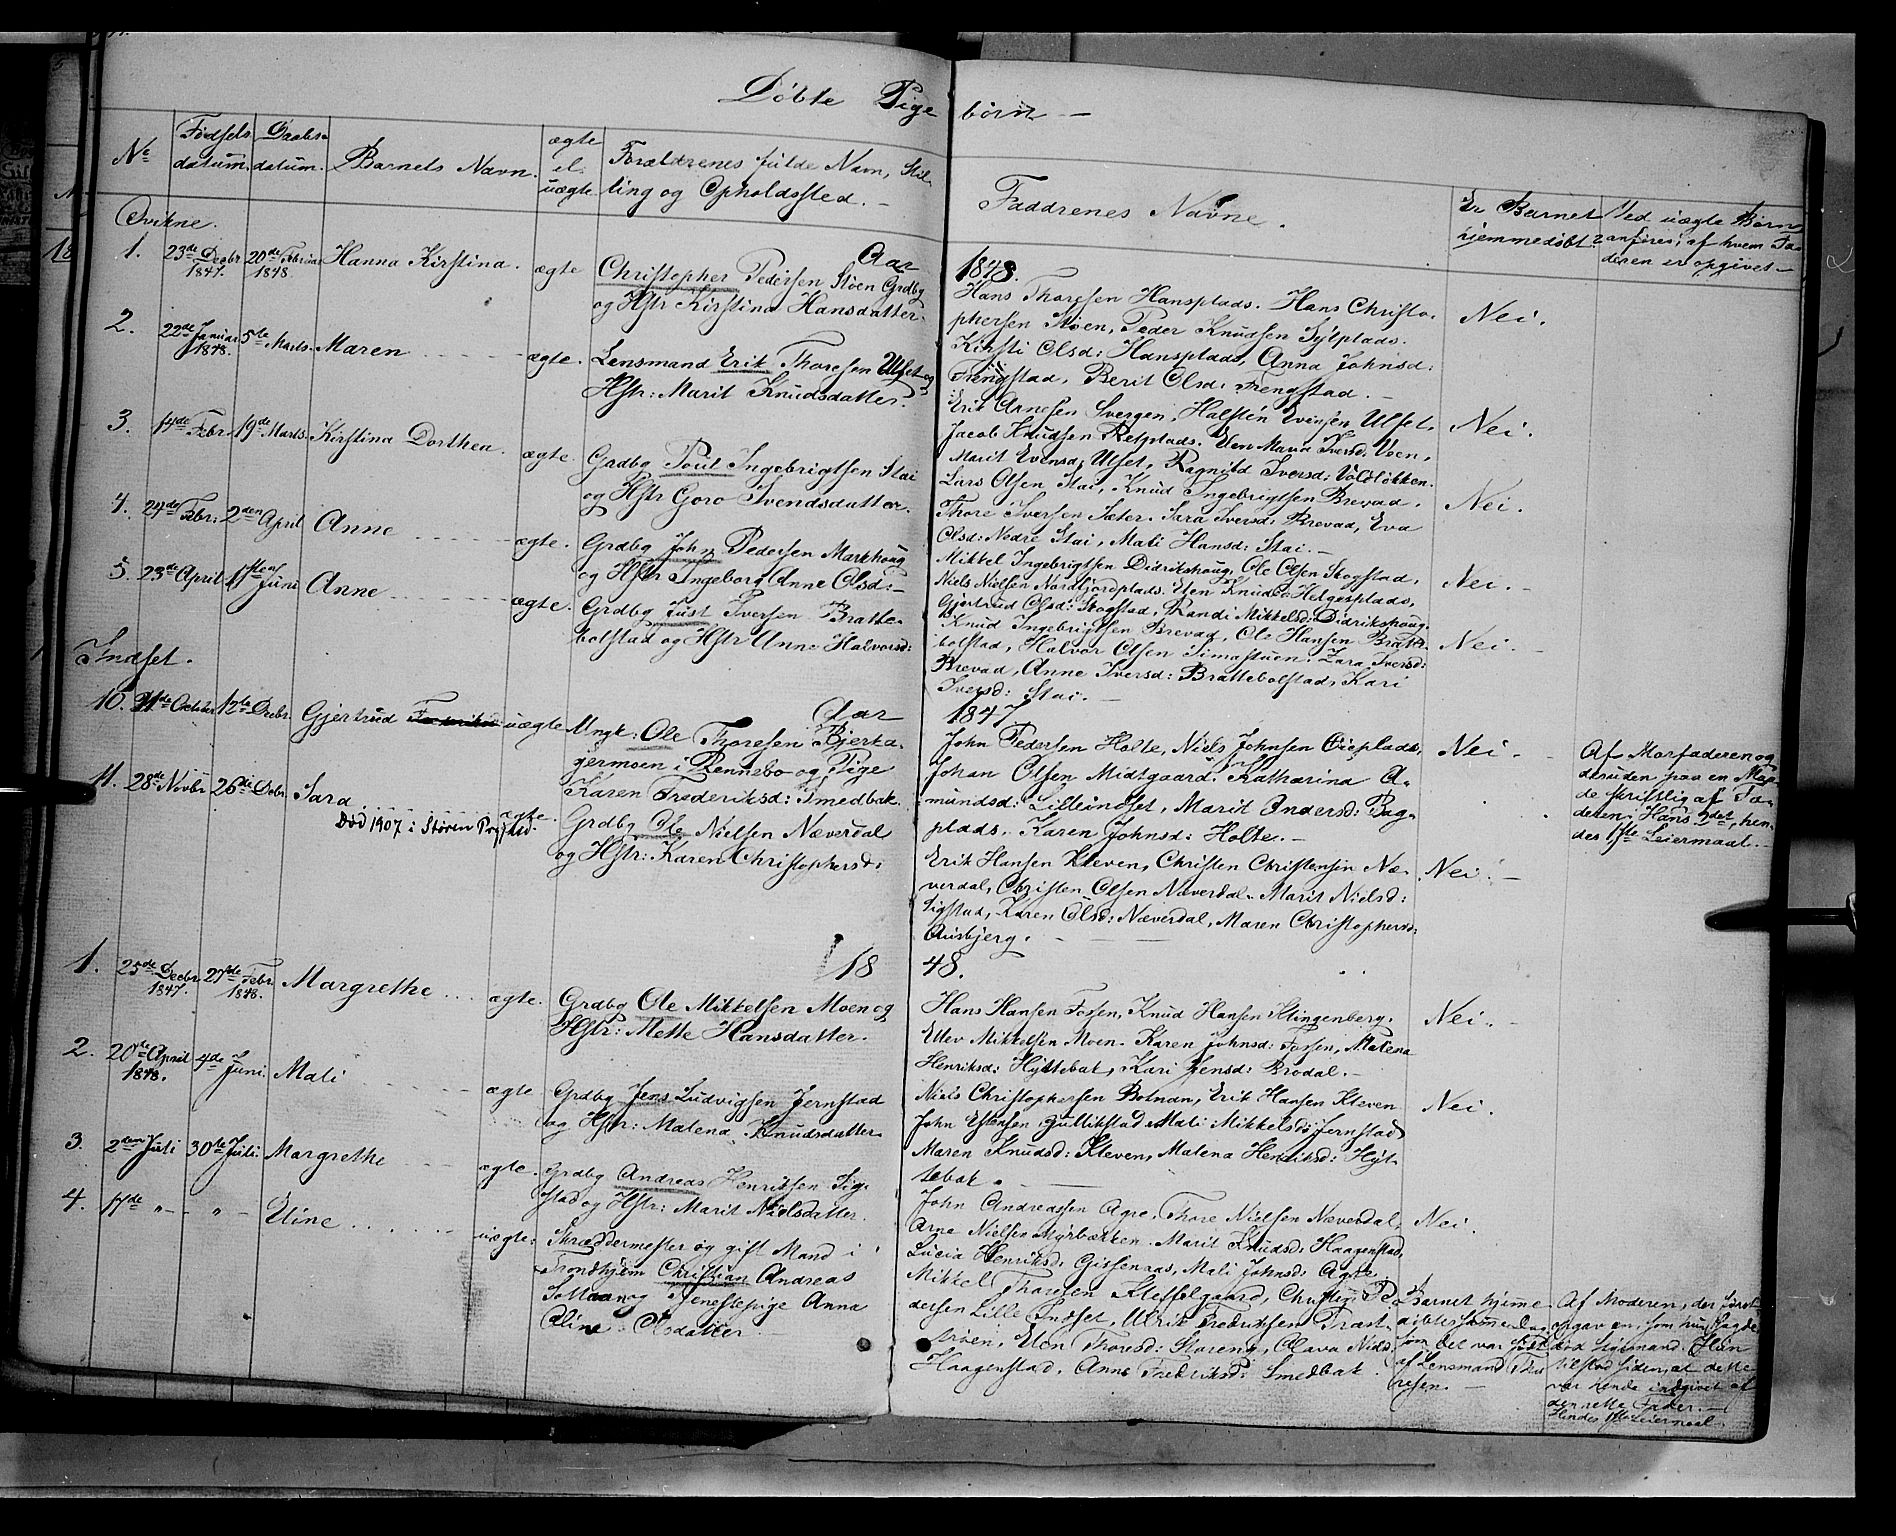 Döbte Pigebörn —
No
Födsels datum.
Daabs datum.
Barnets Navn.
ægte el. uægte
Forældrenes fulde Navn, Stilling og Opholdssted. —
Faddrenes Navne.
Er Barnet hjemmedøbt?
Ved uægte Børn anføres, af hvem Faderen er opgivet —
Qvikne.
Aar 1848.
1. 23de Decbr 1847. 20de Februar 1848. Hanna Kirstina. ægte
Christopher Pedersen Stöen Grdbg
og Hstr Kirstina Hansdatter.
Hans Thoresen Hansplads. Hans Christo-
phersen Stöen, Peder Knudsen Sylplads.
Kirsti Olsd: Hansplads, Anna Johnsd:
Frengstad, Berit Olsd: Frengstad. —
Nei.
2. 22de Januar 1848. 5te Marts. Maren ægte.
Lensmand Erik Thoresen Ulset og
Hstr: Marit Knudsdatter.
Erik Arnesen Svergen, Halsten Evensen Ulset,
Jacob Knudsen Retplads. Elen Maria Iversd: Veen,
Marit Evensd: Ulset, Ragnild Iversd: Voldløkken.
Nei.
3. 14de Febr. 19de Marts. Kirstina Dorthea. ægte.
Grdbg Poul Ingebrigtsen Stai
og Hstr Goro Svendsdatter.
Lars Olsen Stai, Knud Ingebrigtsen Brevad.
Thore Iversen Sæter. Sara Iversd: Brevad, Eva
Olsd: Nedre Stai, Mali Hansd: Stai. —
Nei.
4. 24de Febr: 2den April Anne ægte.
Grdbg John Pedersen Markhoug
og Hstr Ingeborg Anne Olsd: —
Mikkel Ingebrigtsen Didrikshoug, Ole Olsen Skogstad,
Niels Nielsen Nordfjordplads. Elen Knudsd: Helgesplads,
Gjertrud Olsd: Skogstad, Randi Mikkelsd: Didrikshoug.
Nei. —
5. 23de April 11te Juni Anne ægte.
Grdbg Just Iversen Bratte-
bolstad og Hstr Anne Halvorsd:
Knud Ingebrigtsen Brevad, Ole Hansen Bratte-
bolstad, Halvor Olsen Simastuen. Zara Iversd:
Brevad, Anne Iversd: Brattebolstad, Kari
Iversd: Stai. —
Nei. —
Indset.
Aar 1847
10. October 12te Decbr. Gjertrud uægte
Ungk: Ole Thoresen Bjerka-
germoen i Rennebo og Pige
Karen Frederiksd: Smedbak.
John Pedersen Holte, Niels Johnsen Öieplads,
Johan Olsen Midtgaard. Katharina A-
mundsd: Lilleindset, Marit Andersd: Bag-
plads. Karen Johnsd: Holte. —
Nei —
Af Morfaderen og
desuden paa en Maa-
de skriftlig af Fa-
deren. Hans 2det, hen-
des 1ste Leiermaal. —
11. 28de Novbr 26de Decbr. Sara ægte.
Død 1907 i Støren Prgjeld.
Grdbg Ole Nielsen Næverdal
og Hstr: Karen Christophersd:
Erik Hansen Kleven, Christen Christensen Næ-
verdal, Christen Olsen Næverdal. Marit Nielsd:
Sigstad, Karen Olsd: Næverdal, Maren Christophersd:
Ausbjerg. —
Nei. —
1848.
1. 25de Decbr 1847. 27de Febr 1848. Margrethe ægte.
Grdbg Ole Mikkelsen Moen og
Hstr: Mette Hansdatter.
Hans Hansen Fossen, Knud Hansen Klingenberg.
Ellev Mikkelsen Moen. Karen Johnsd: Fossen, Malena
Henriksd: Hyttebak, Kari Jensd: Brodal. —
Nei. —
2. 20de April 1848. 4de Juni. Mali ægte
Grdbg Jens Ludvigsen Jernstad
og Hstr: Malena Knudsdatter
Niels Christophersen Botnan, Erik Hansen Kleven
John Estensen Gullikstad. Mali Mikkelsd: Jernstad
Maren Knudsd: Kleven, Malena Henriksd: Hyt-
tebak. —
Nei.
3. 2den Juli 30te Juli. Margrethe ægte.
Grdbg Andreas Henriksen Sig-
stad og Hstr: Marit Nielsdatter.
John Andreassen Agre, Thore Nielsen Næverdal,
Arne Nielsen Myrbækken. Marit Knudsd: Haagenstad,
Lucia Henriksd: Gissenaas, Mali Johnsd: Agre.
Nei.
4. 11de „— „— Eline uægte:
Skræddermester og gift Mand i
Trondhjem Christian Andreas
og Tjenestepige Anna
Oline Olsdatter.
Mikkel Thoresen Steffelgaard, Christen Pe-
dersen Lille Indset, Ulrik Fredriksen Trast-
Elen Thoresd: Storeng, Olava Nielsd:
Haagenstad, Anne Fredriksd: Smedbak.
Barnet hjemme-
døbt samme Dag
som det var født
af Lensmand Tho-
resen. —
Af Moderen, der først
opgav en, som hun sagde
død Sigmand. Hun
tilstod siden, at dette
var hende indgivet af
den rette Fader. —
Hendes 1ste Leiermaal.